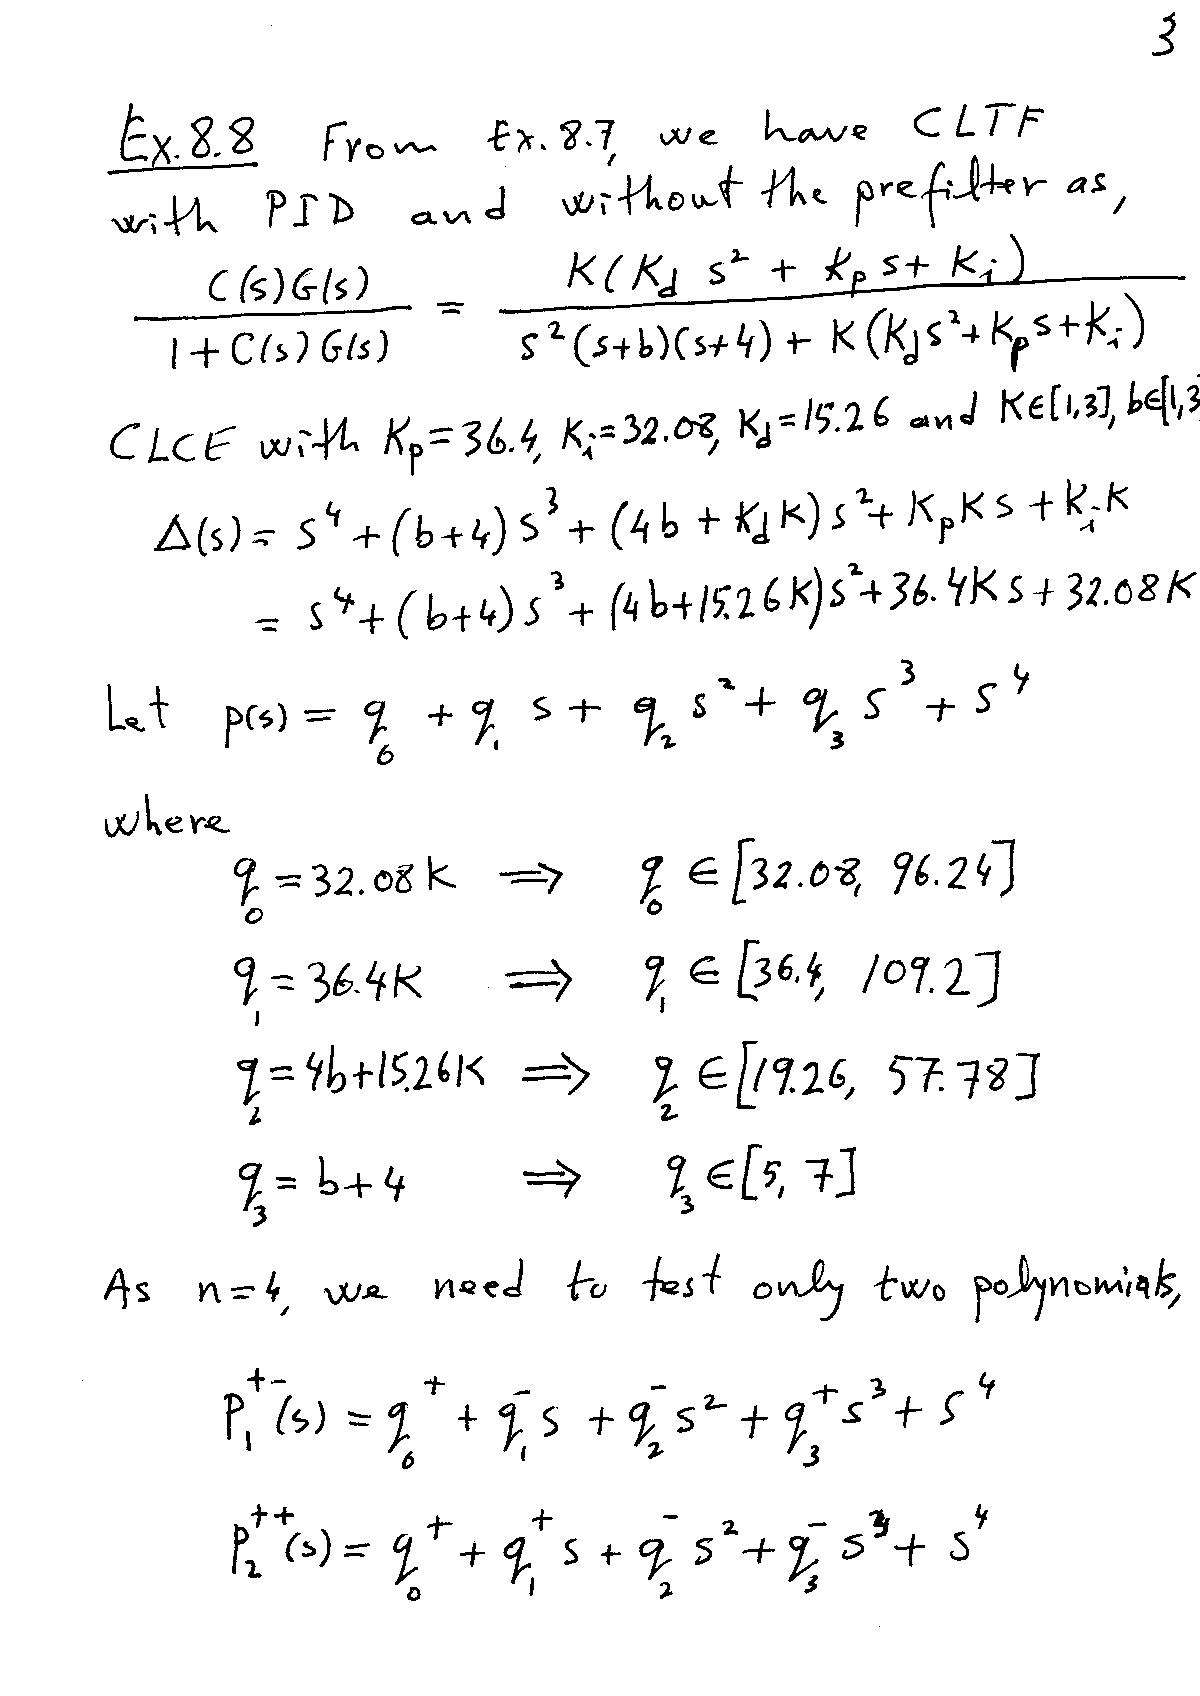 3
Ex. 8.8 From Ex. 8.7, we have CLTF
with PID and without the prefilter as,
C(s)G(s) / 1+C(s)G(s) = K(K_d s² + K_p s + K_i) / s²(s+b)(s+4) + K(K_d s² + K_p s + K_i)
CLCE with K_p=36.4, K_i=32.08, K_d=15.26 and K∈[1,3], b∈[1,3
Δ(s) = s⁴ + (b+4)s³ + (4b + K_d K)s² + K_p K s + K_i K
= s⁴ + (b+4)s³ + (4b+15.26K)s² + 36.4K s + 32.08K
Let p(s) = q₀ + q₁ s + q₂ s² + q₃ s³ + s⁴
where
q₀ = 32.08K ⟹ q₀ ∈ [32.08, 96.24]
q₁ = 36.4K ⟹ q₁ ∈ [36.4, 109.2]
q₂ = 4b+15.26K ⟹ q₂ ∈ [19.26, 57.78]
q₃ = b+4 ⟹ q₃ ∈ [5, 7]
As n=4, we need to test only two polynomials,
P₁⁺⁻(s) = q₀⁺ + q₁⁻ s + q₂⁻ s² + q₃⁺ s³ + s⁴
P₂⁺⁺(s) = q₀⁺ + q₁⁺ s + q₂⁻ s² + q₃⁻ s³ + s⁴